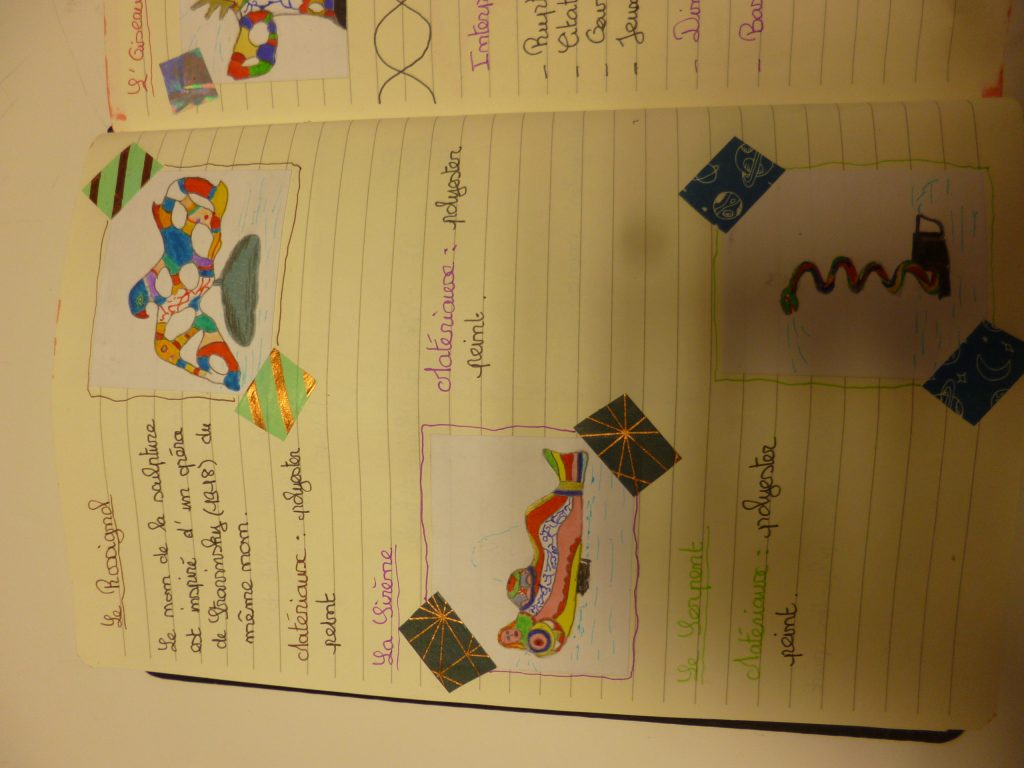 Le Rossignol
Le nom de la sculpture
est inspiré d'un opéra
de Stravinsky (1918) du
même nom.
Matériaux : polyester
peint
La Sirène
Matériaux : polyester
peint.
Le Serpent
Matériaux : polyester
peint.
L'Oiseau
Interp
- Rupt
- Citat
-
-
- Dim
- Bas